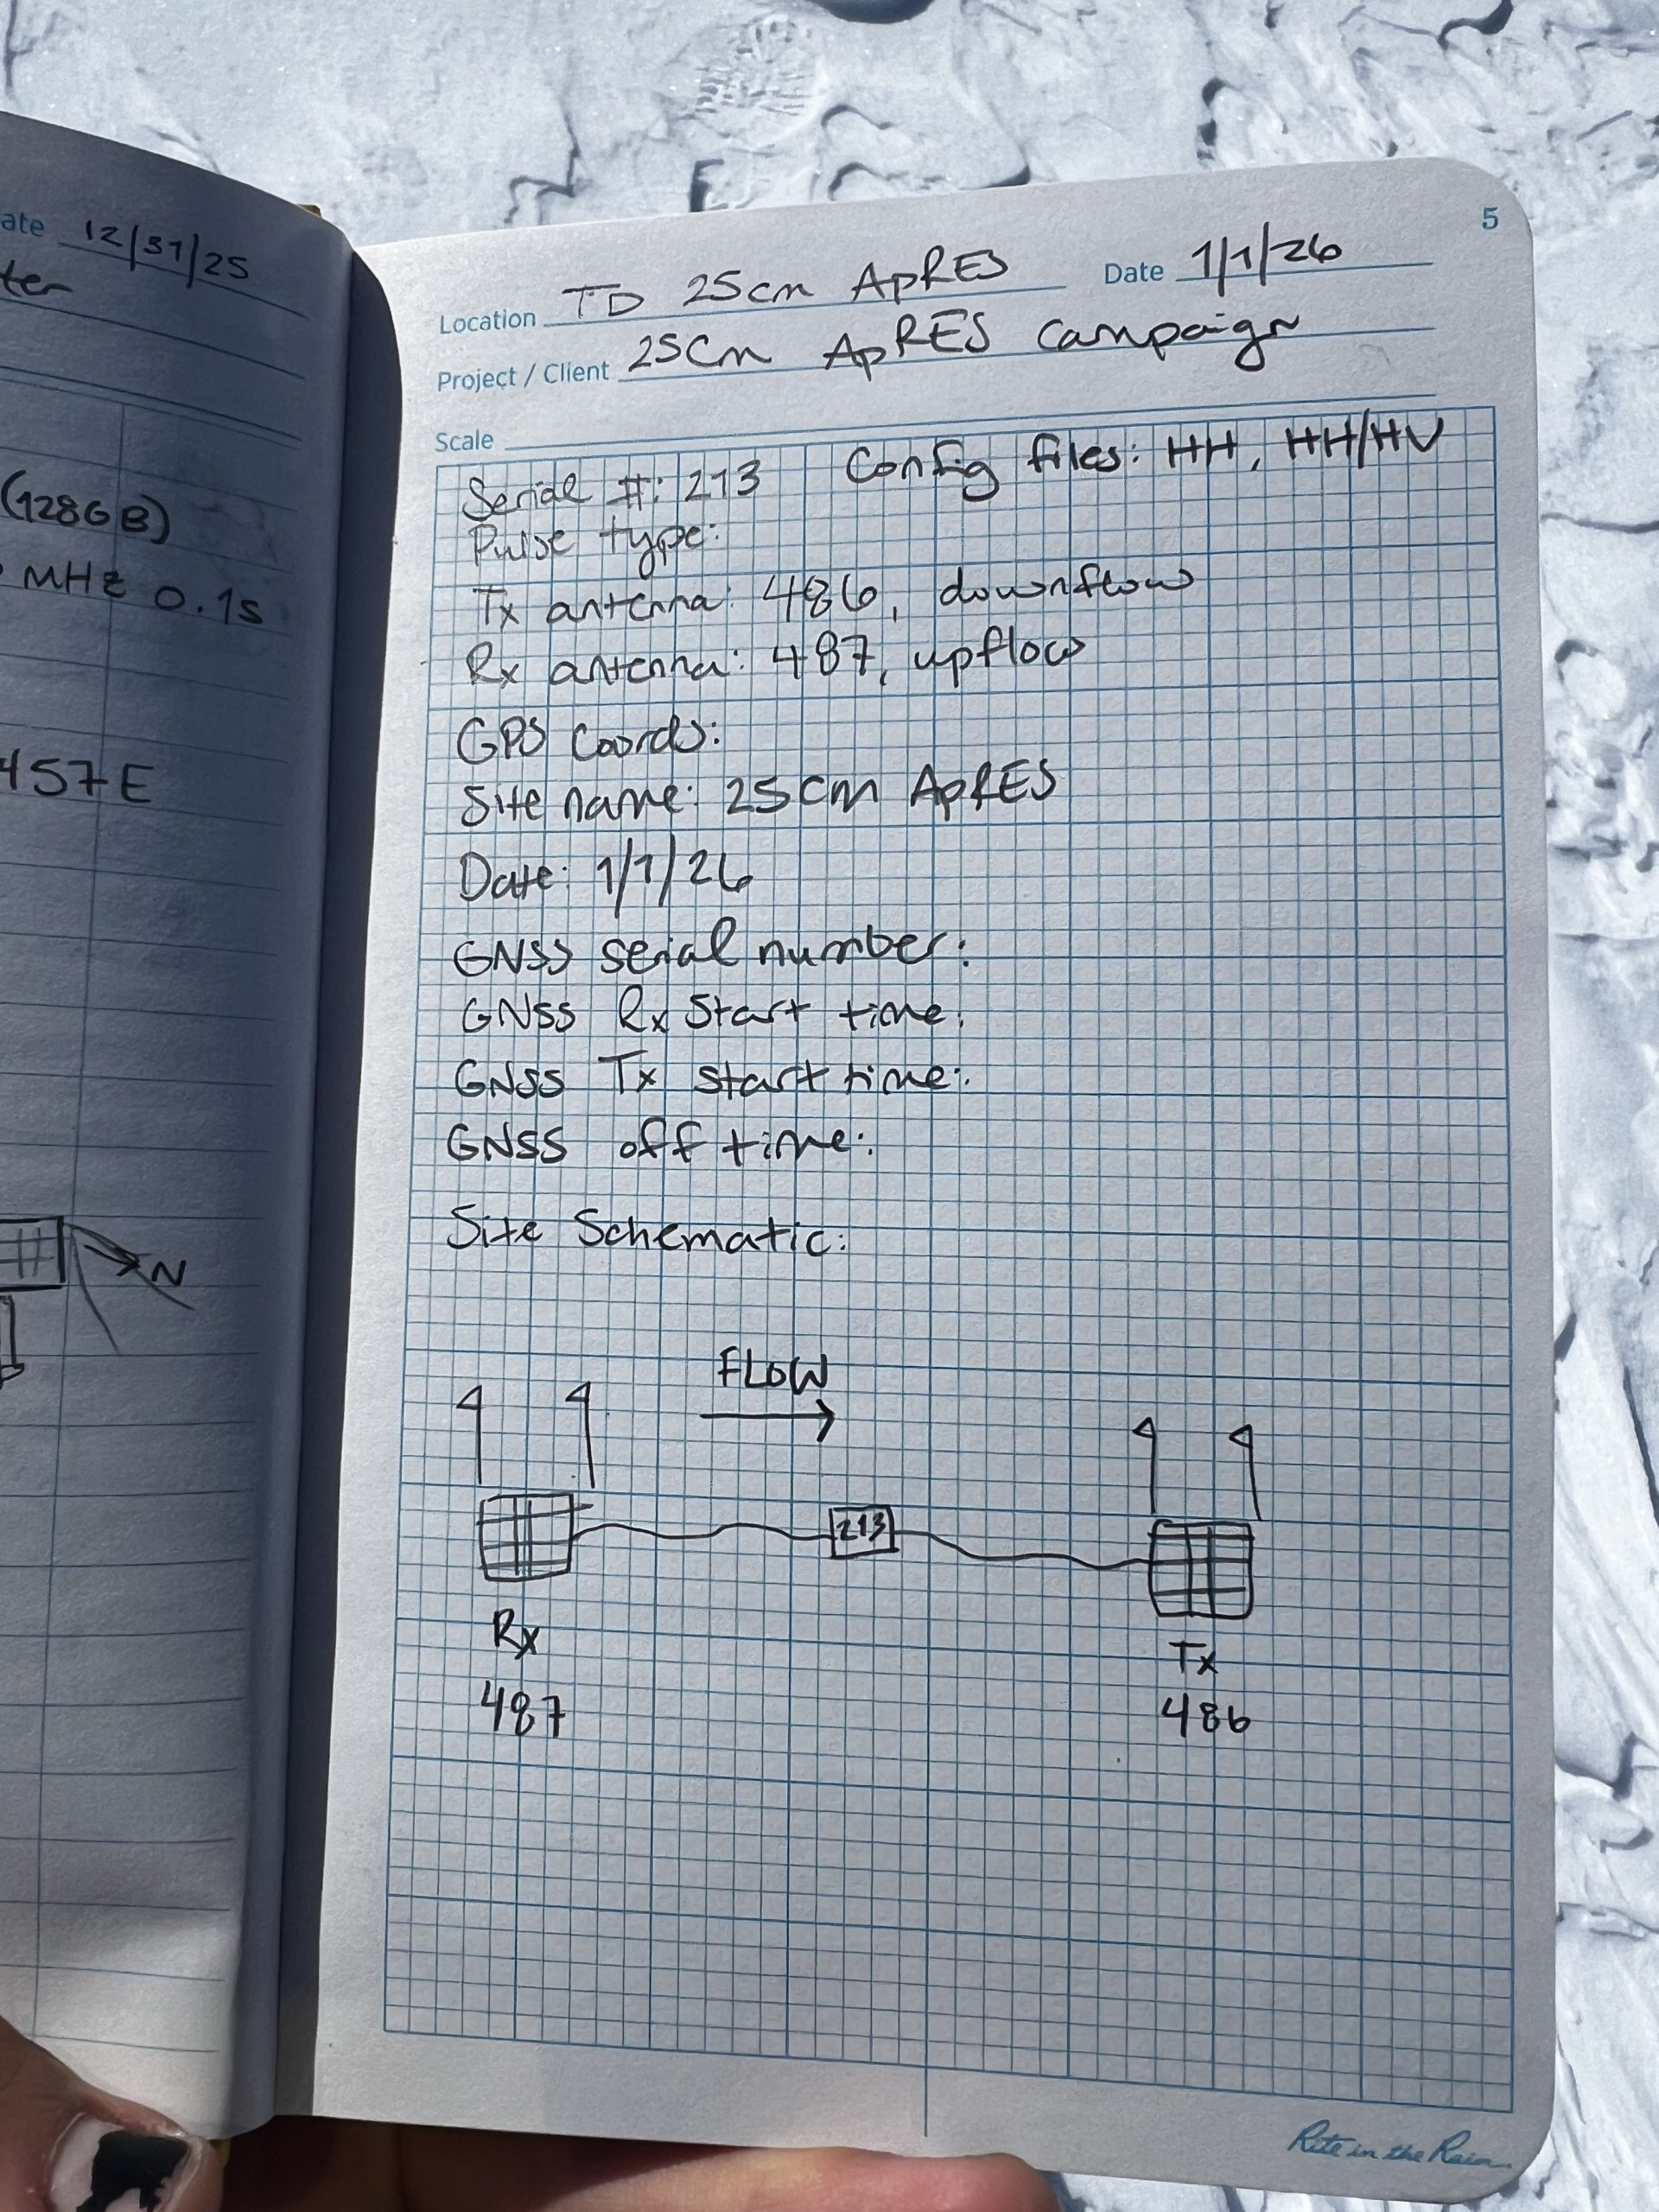 ate 12/31/25
ter
(128GB)
MHz 0.1s
457E
N
5
Location TD 25cm ApRES Date 1/1/26
Project / Client 25cm ApRES campaign
Scale
Serial #: 213 Config files: HH, HH/HV
Pulse type:
Tx antenna: 486, downflow
Rx antenna: 487, upflow
GPS Coords:
Site name: 25cm ApRES
Date: 1/1/26
GNSS serial number:
GNSS Rx Start time:
GNSS Tx start time:
GNSS off time:
Site Schematic:
FLOW
213
Rx
Tx
487
486
Rite in the Rain